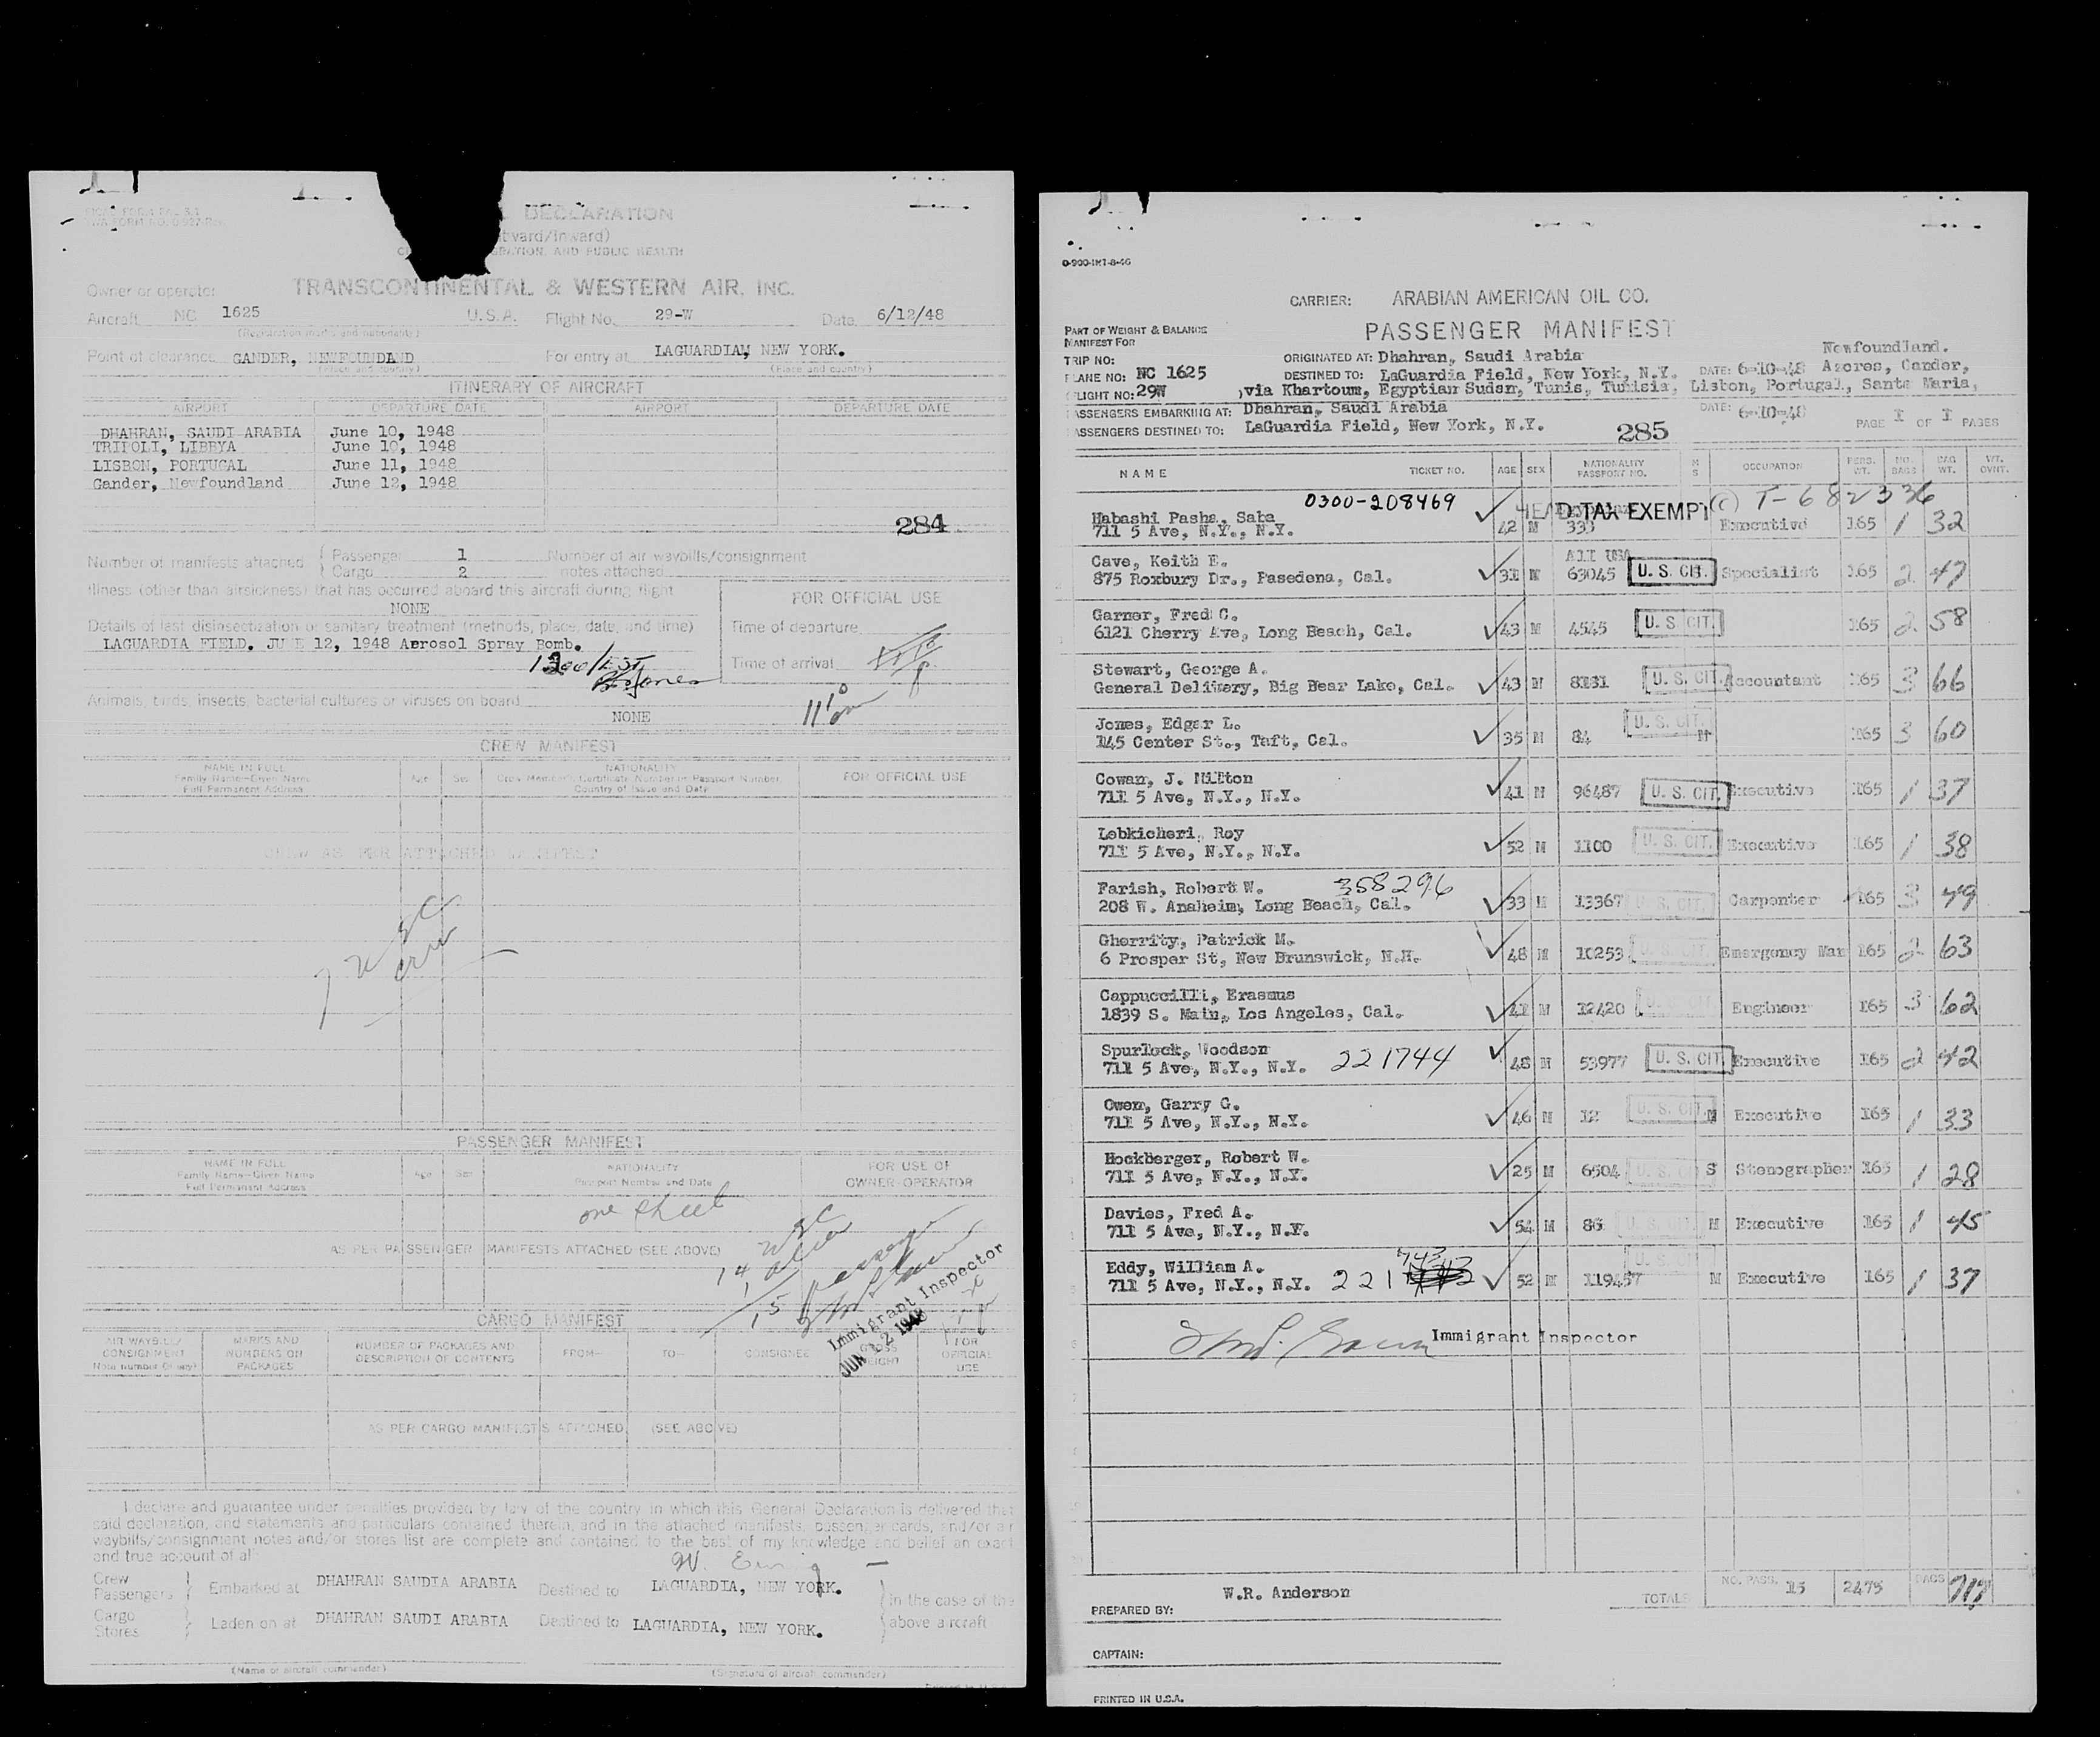 DECLARATION
Owner or operator TRANSCONTINENTAL & WESTERN AIR. INC.
Aircraft NC 1625 U.S.A. Flight No. 29-W Date 6/12/48
(Registration marks and nationality)
Point of clearance GANDER, NEWFOUNDLAND For entry at LAGUARDIA, NEW YORK.
(Place and country) (Place and country)
ITINERARY OF AIRCRAFT
AIRPORT DEPARTURE DATE AIRPORT DEPARTURE DATE
DHAHRAN, SAUDI ARABIA June 10, 1948
TRIPOLI, LIBBYA June 10, 1948
LISBON, PORTUGAL June 11, 1948
Gander, Newfoundland June 12, 1948
284
Number of manifests attached { Passenger 1 Number of air waybills/consignment
Cargo 2 notes attached
Illness (other than airsickness) that has occurred aboard this aircraft during flight
NONE
FOR OFFICIAL USE
Details of last disinsectization or sanitary treatment (methods, place, date, and time)
LAGUARDIA FIELD. JUNE 12, 1948 Aerosol Spray Bomb.
Time of departure
Time of arrival
Animals, birds, insects, bacterial cultures or viruses on board
NONE
CREW MANIFEST
NAME IN FULL
Family Name—Given Name
Full Permanent Address
Age Sex
NATIONALITY
Crew Member's Certificate Number or Passport Number
Country of Issue and Date
FOR OFFICIAL USE
CREW AS PER ATTACHED MANIFEST
PASSENGER MANIFEST
NAME IN FULL
Family Name—Given Name
Full Permanent Address
Age Sex
NATIONALITY
Passport Number and Date
FOR USE OF
OWNER-OPERATOR
one sheet
AS PER PASSENGER MANIFESTS ATTACHED (SEE ABOVE)
Immigrant Inspector
JUN 12 1948
CARGO MANIFEST
AIR WAYBILL/
CONSIGNMENT
Note number (if any)
MARKS AND
NUMBERS ON
PACKAGES
NUMBER OF PACKAGES AND
DESCRIPTION OF CONTENTS
FROM— TO— CONSIGNEE
GROSS
WEIGHT
FOR
OFFICIAL
USE
AS PER CARGO MANIFESTS ATTACHED (SEE ABOVE)
I declare and guarantee under penalties provided by law of the country in which this General Declaration is delivered that
said declaration, and statements and particulars contained therein, and in the attached manifests, passenger cards, and/or air
waybills/consignment notes and/or stores list are complete and contained to the best of my knowledge and belief an exact
and true account of all
Crew
Passengers } Embarked at DHAHRAN SAUDIA ARABIA Destined to LAGUARDIA, NEW YORK.
Cargo
Stores } Laden on at DHAHRAN SAUDI ARABIA Destined to LAGUARDIA, NEW YORK.
In the case of the
above aircraft
(Name of aircraft commander) (Signature of aircraft commander)
0-900-INT-8-46
CARRIER: ARABIAN AMERICAN OIL CO.
PASSENGER MANIFEST
PART OF WEIGHT & BALANCE
MANIFEST FOR
TRIP NO:
PLANE NO: NC 1625
FLIGHT NO: 29W
ORIGINATED AT: Dhahran, Saudi Arabia
DESTINED TO: LaGuardia Field, New York, N.Y. DATE: 6-10-48 Azores, Gander, Newfoundland.
via Khartoum, Egyptian Sudan, Tunis, Tunisia, Lisbon, Portugal, Santa Maria,
PASSENGERS EMBARKING AT: Dhahran, Saudi Arabia DATE: 6-10-48
PASSENGERS DESTINED TO: LaGuardia Field, New York, N.Y. 285 PAGE 1 OF 1 PAGES
NAME TICKET NO. AGE SEX NATIONALITY PASSPORT NO. M S OCCUPATION PERS. WT. NO. BAGS BAG WT. WT. OVNT.
0300-208469 HEAD TAX EXEMPT (C) T-682336
Habashi Pasha, Saba
711 5 Ave, N.Y., N.Y. 42 M 333 Executive 165 1 32
Cave, Keith E. All USA
875 Roxbury Dr., Pasedena, Cal. 31 M 63045 U. S. CIT. Specialist 165 2 47
Garner, Fred C.
6121 Cherry Ave, Long Beach, Cal. 43 M 4545 U. S CIT. 165 2 58
Stewart, George A.
General Delivery, Big Bear Lake, Cal. 43 M 8131 U. S. CIT. Accountant 165 3 66
Jones, Edgar L.
145 Center St., Taft, Cal. 35 M 84 U. S. CIT. M 165 3 60
Cowan, J. Milton
711 5 Ave, N.Y., N.Y. 41 M 96487 U. S. CIT. Executive 165 1 37
Lebkicheri, Roy
711 5 Ave, N.Y., N.Y. 52 M 1100 U. S. CIT. Executive 165 1 38
Farish, Robert W. 358296
208 W. Anaheim, Long Beach, Cal. 33 M 13367 U. S. CIT. Carpenter 165 3 49
Gherrity, Patrick M.
6 Prosper St, New Brunswick, N.H. 48 M 10253 U. S. CIT. Emergency Man 165 2 63
Cappuccilli, Erasmus
1839 S. Main, Los Angeles, Cal. 41 M 12420 U. S. CIT Engineer 165 3 62
Spurlock, Woodson
711 5 Ave, N.Y., N.Y. 221744 48 M 53977 U. S. CIT. Executive 165 2 42
Owen, Garry G.
711 5 Ave, N.Y., N.Y. 46 M 12 U. S. CIT. M Executive 165 1 33
Hockberger, Robert W.
711 5 Ave, N.Y., N.Y. 25 M 6504 U. S. CIT S Stenographer 165 1 28
Davies, Fred A.
711 5 Ave, N.Y., N.Y. 54 M 86 U. S. CIT. M Executive 165 1 45
Eddy, William A. 743
711 5 Ave, N.Y., N.Y. 221 52 M 119457 U. S. CIT M Executive 165 1 37
Immigrant Inspector
W.R. Anderson
PREPARED BY:
TOTALS NO. PASS. 15 2475 BAGS 717
CAPTAIN:
PRINTED IN U.S.A.